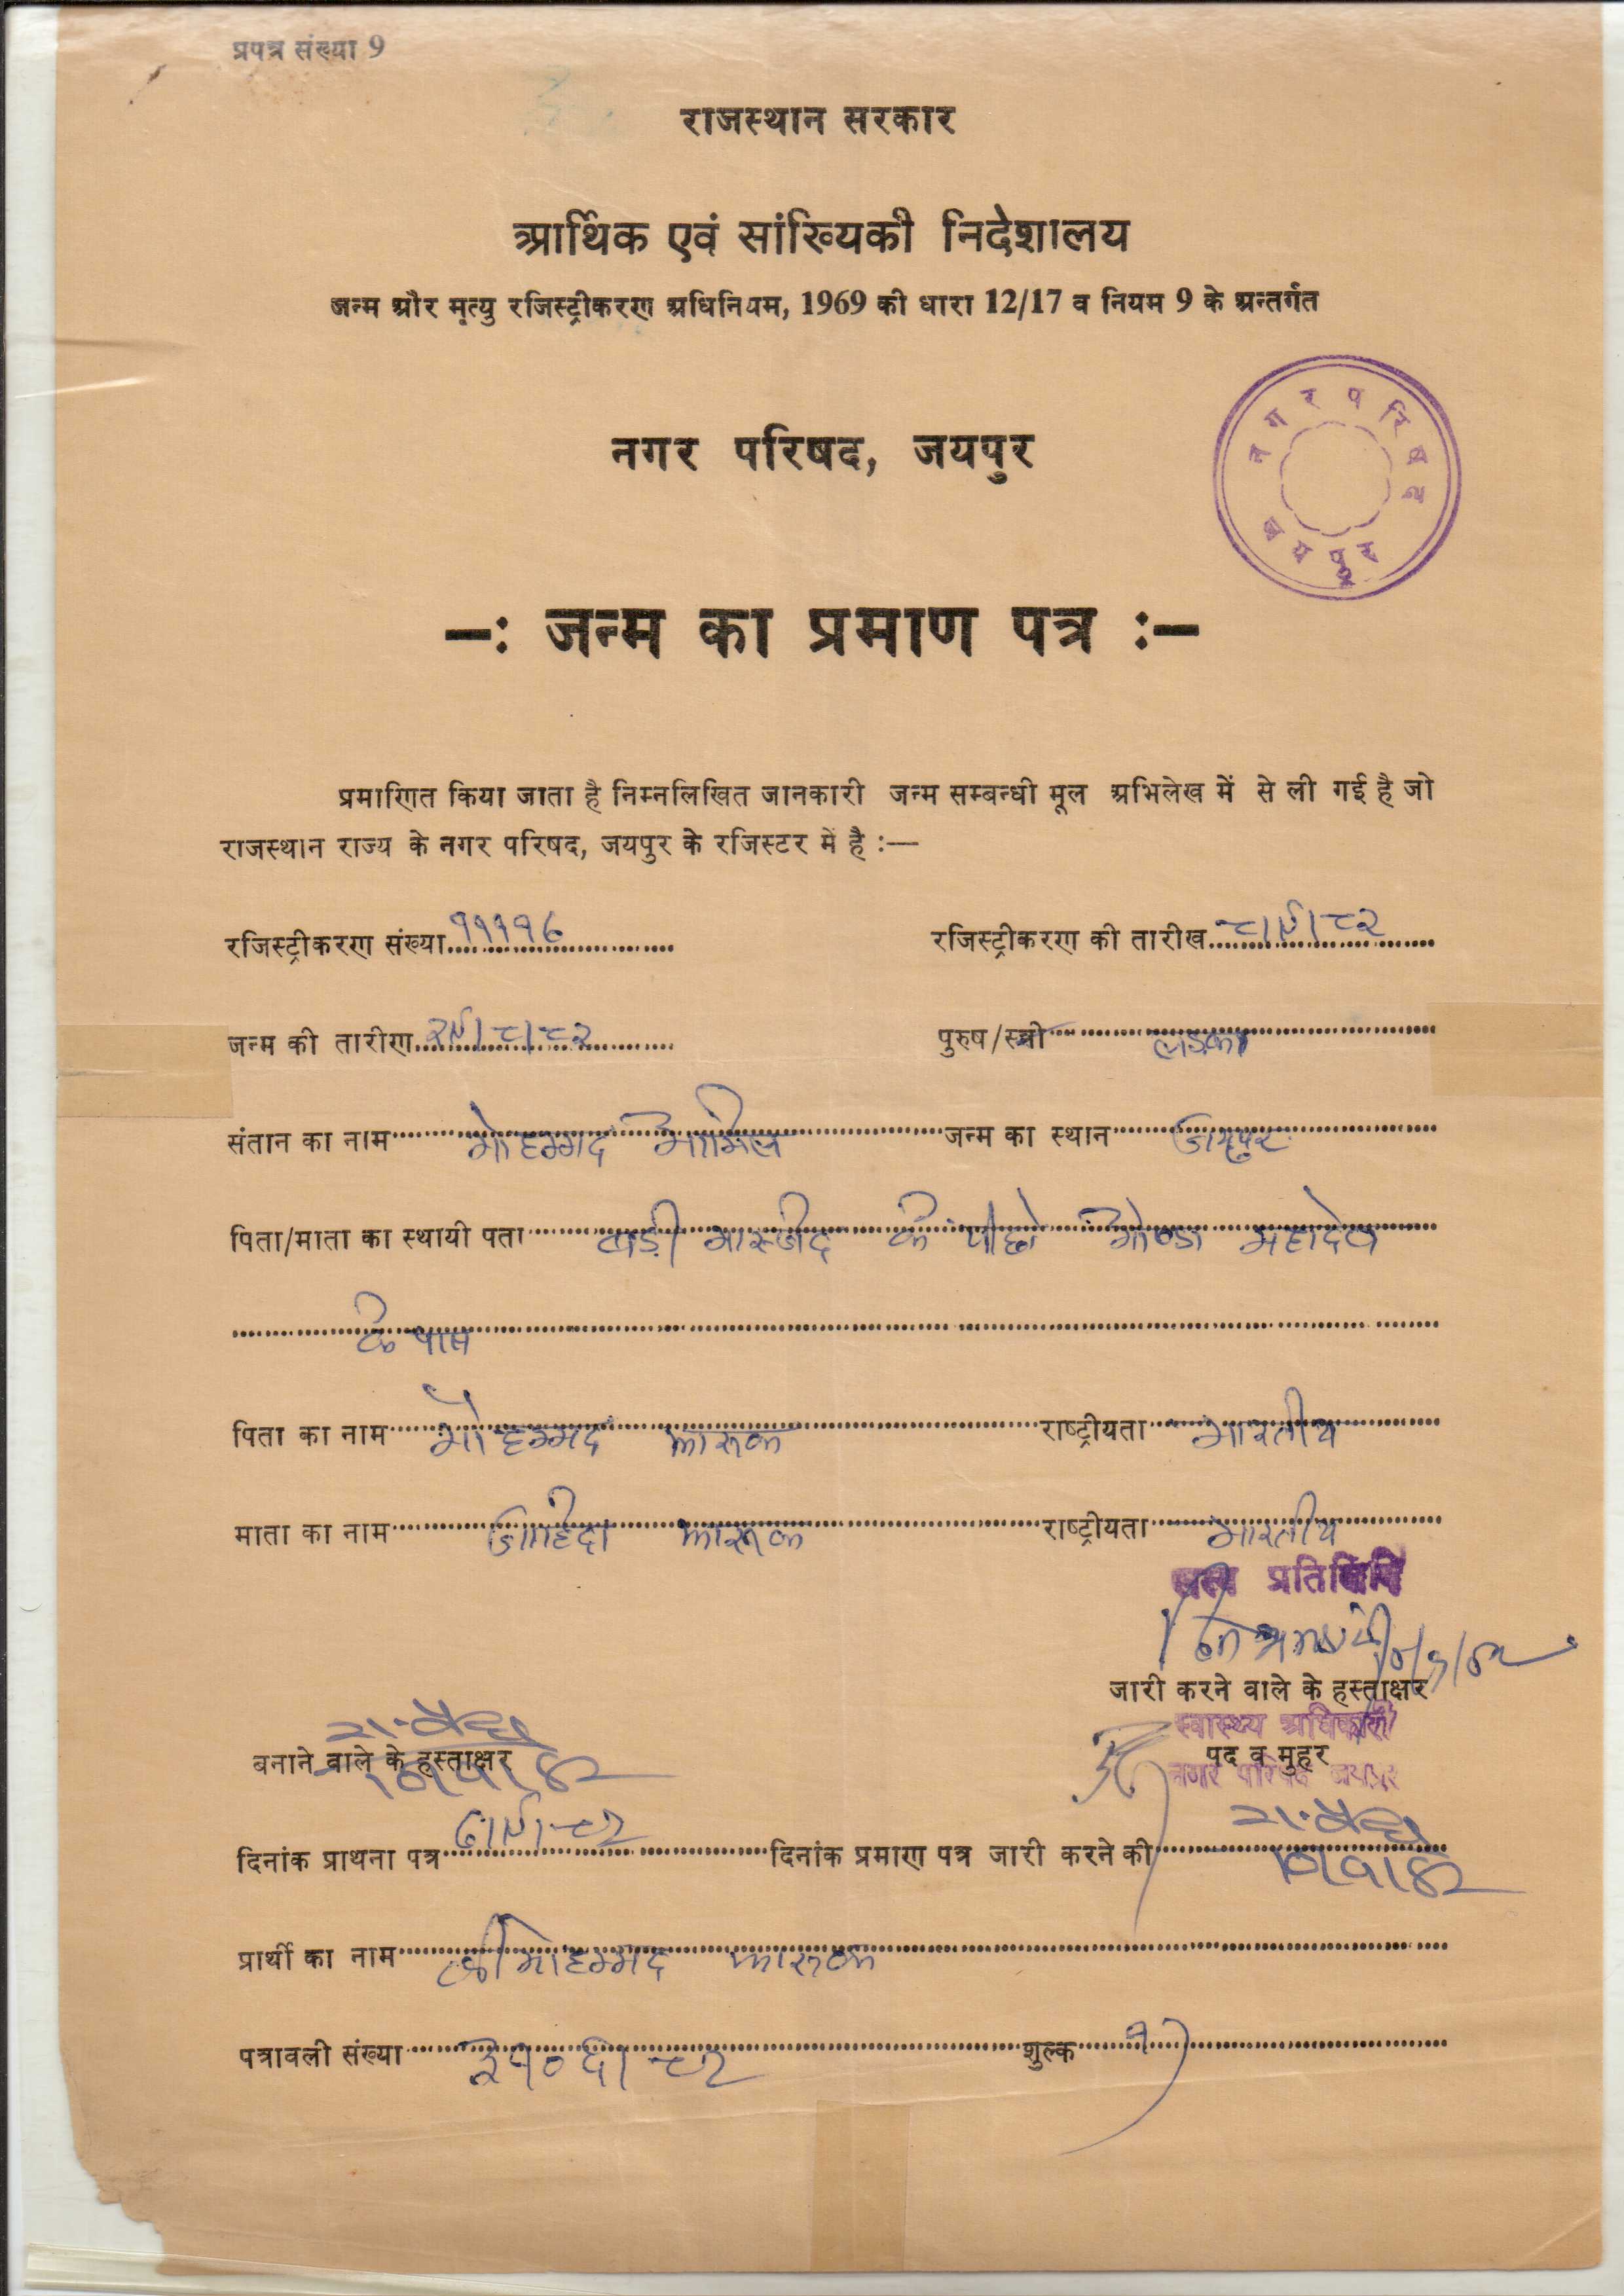 प्रपत्र संख्या 9
राजस्थान सरकार
आर्थिक एवं सांख्यिकी निदेशालय
जन्म और मृत्यु रजिस्ट्रीकरण अधिनियम, 1969 की धारा 12/17 व नियम 9 के अन्तर्गत
नगर परिषद, जयपुर
नगर परिषद जयपुर
-: जन्म का प्रमाण पत्र :-
प्रमाणित किया जाता है निम्नलिखित जानकारी जन्म सम्बन्धी मूल अभिलेख में से ली गई है जो
राजस्थान राज्य के नगर परिषद, जयपुर के रजिस्टर में है :—
रजिस्ट्रीकरण संख्या १११९६ रजिस्ट्रीकरण की तारीख ८।९।८२
जन्म की तारीण २९।८।८२ पुरुष/स्त्री लडका
संतान का नाम मोहम्मद जन्म का स्थान जयपुर
पिता/माता का स्थायी पता बड़ी मस्जीद के पीछे महादेव
के पास
पिता का नाम मोहम्मद फारूक राष्ट्रीयता भारतीय
माता का नाम जाहिदा फारूक राष्ट्रीयता भारतीय
सत्य प्रतिलिपि
जारी करने वाले के हस्ताक्षर
स्वास्थ्य अधिकारी
बनाने वाले के हस्ताक्षर पद व मुहर
नगर परिषद जयपुर
दिनांक प्राथना पत्र दिनांक प्रमाण पत्र जारी करने की
प्रार्थी का नाम श्री मोहम्मद फारूक
पत्रावली संख्या शुल्क